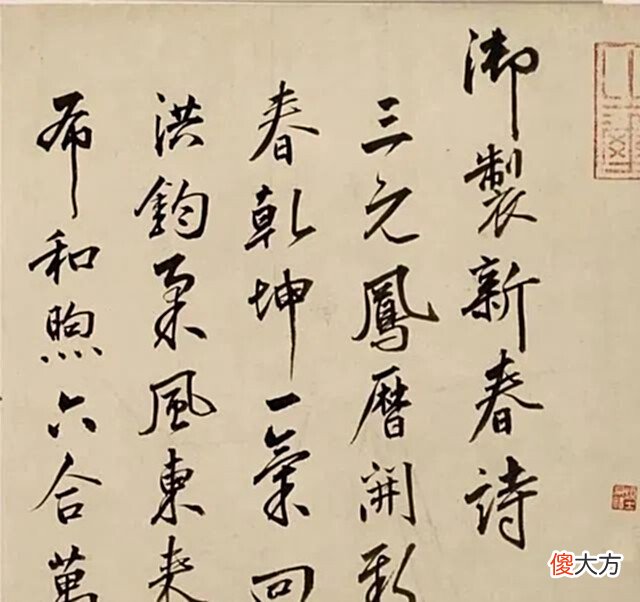 御製新春詩
三元鳳曆開新
春乾坤一氣回
洪鈞柔風東来
布和煦六合萬
傻大方